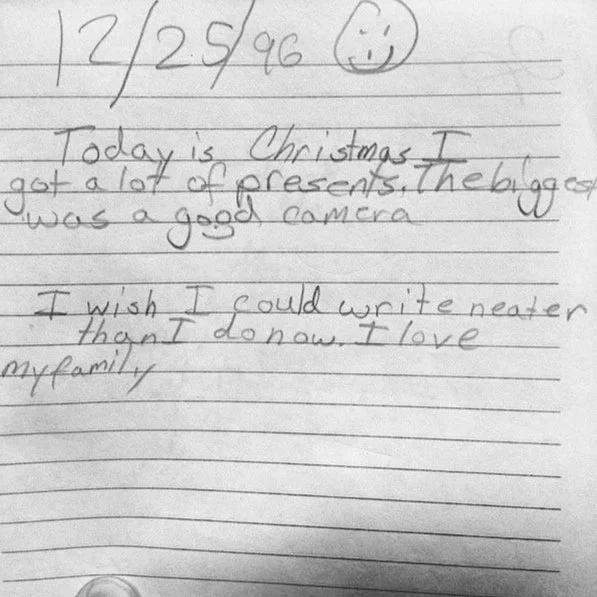 12/25/96
Today is Christmas I
got a lot of presents. The biggest
was a good camera
I wish I could write neater
than I do now. I love
my family